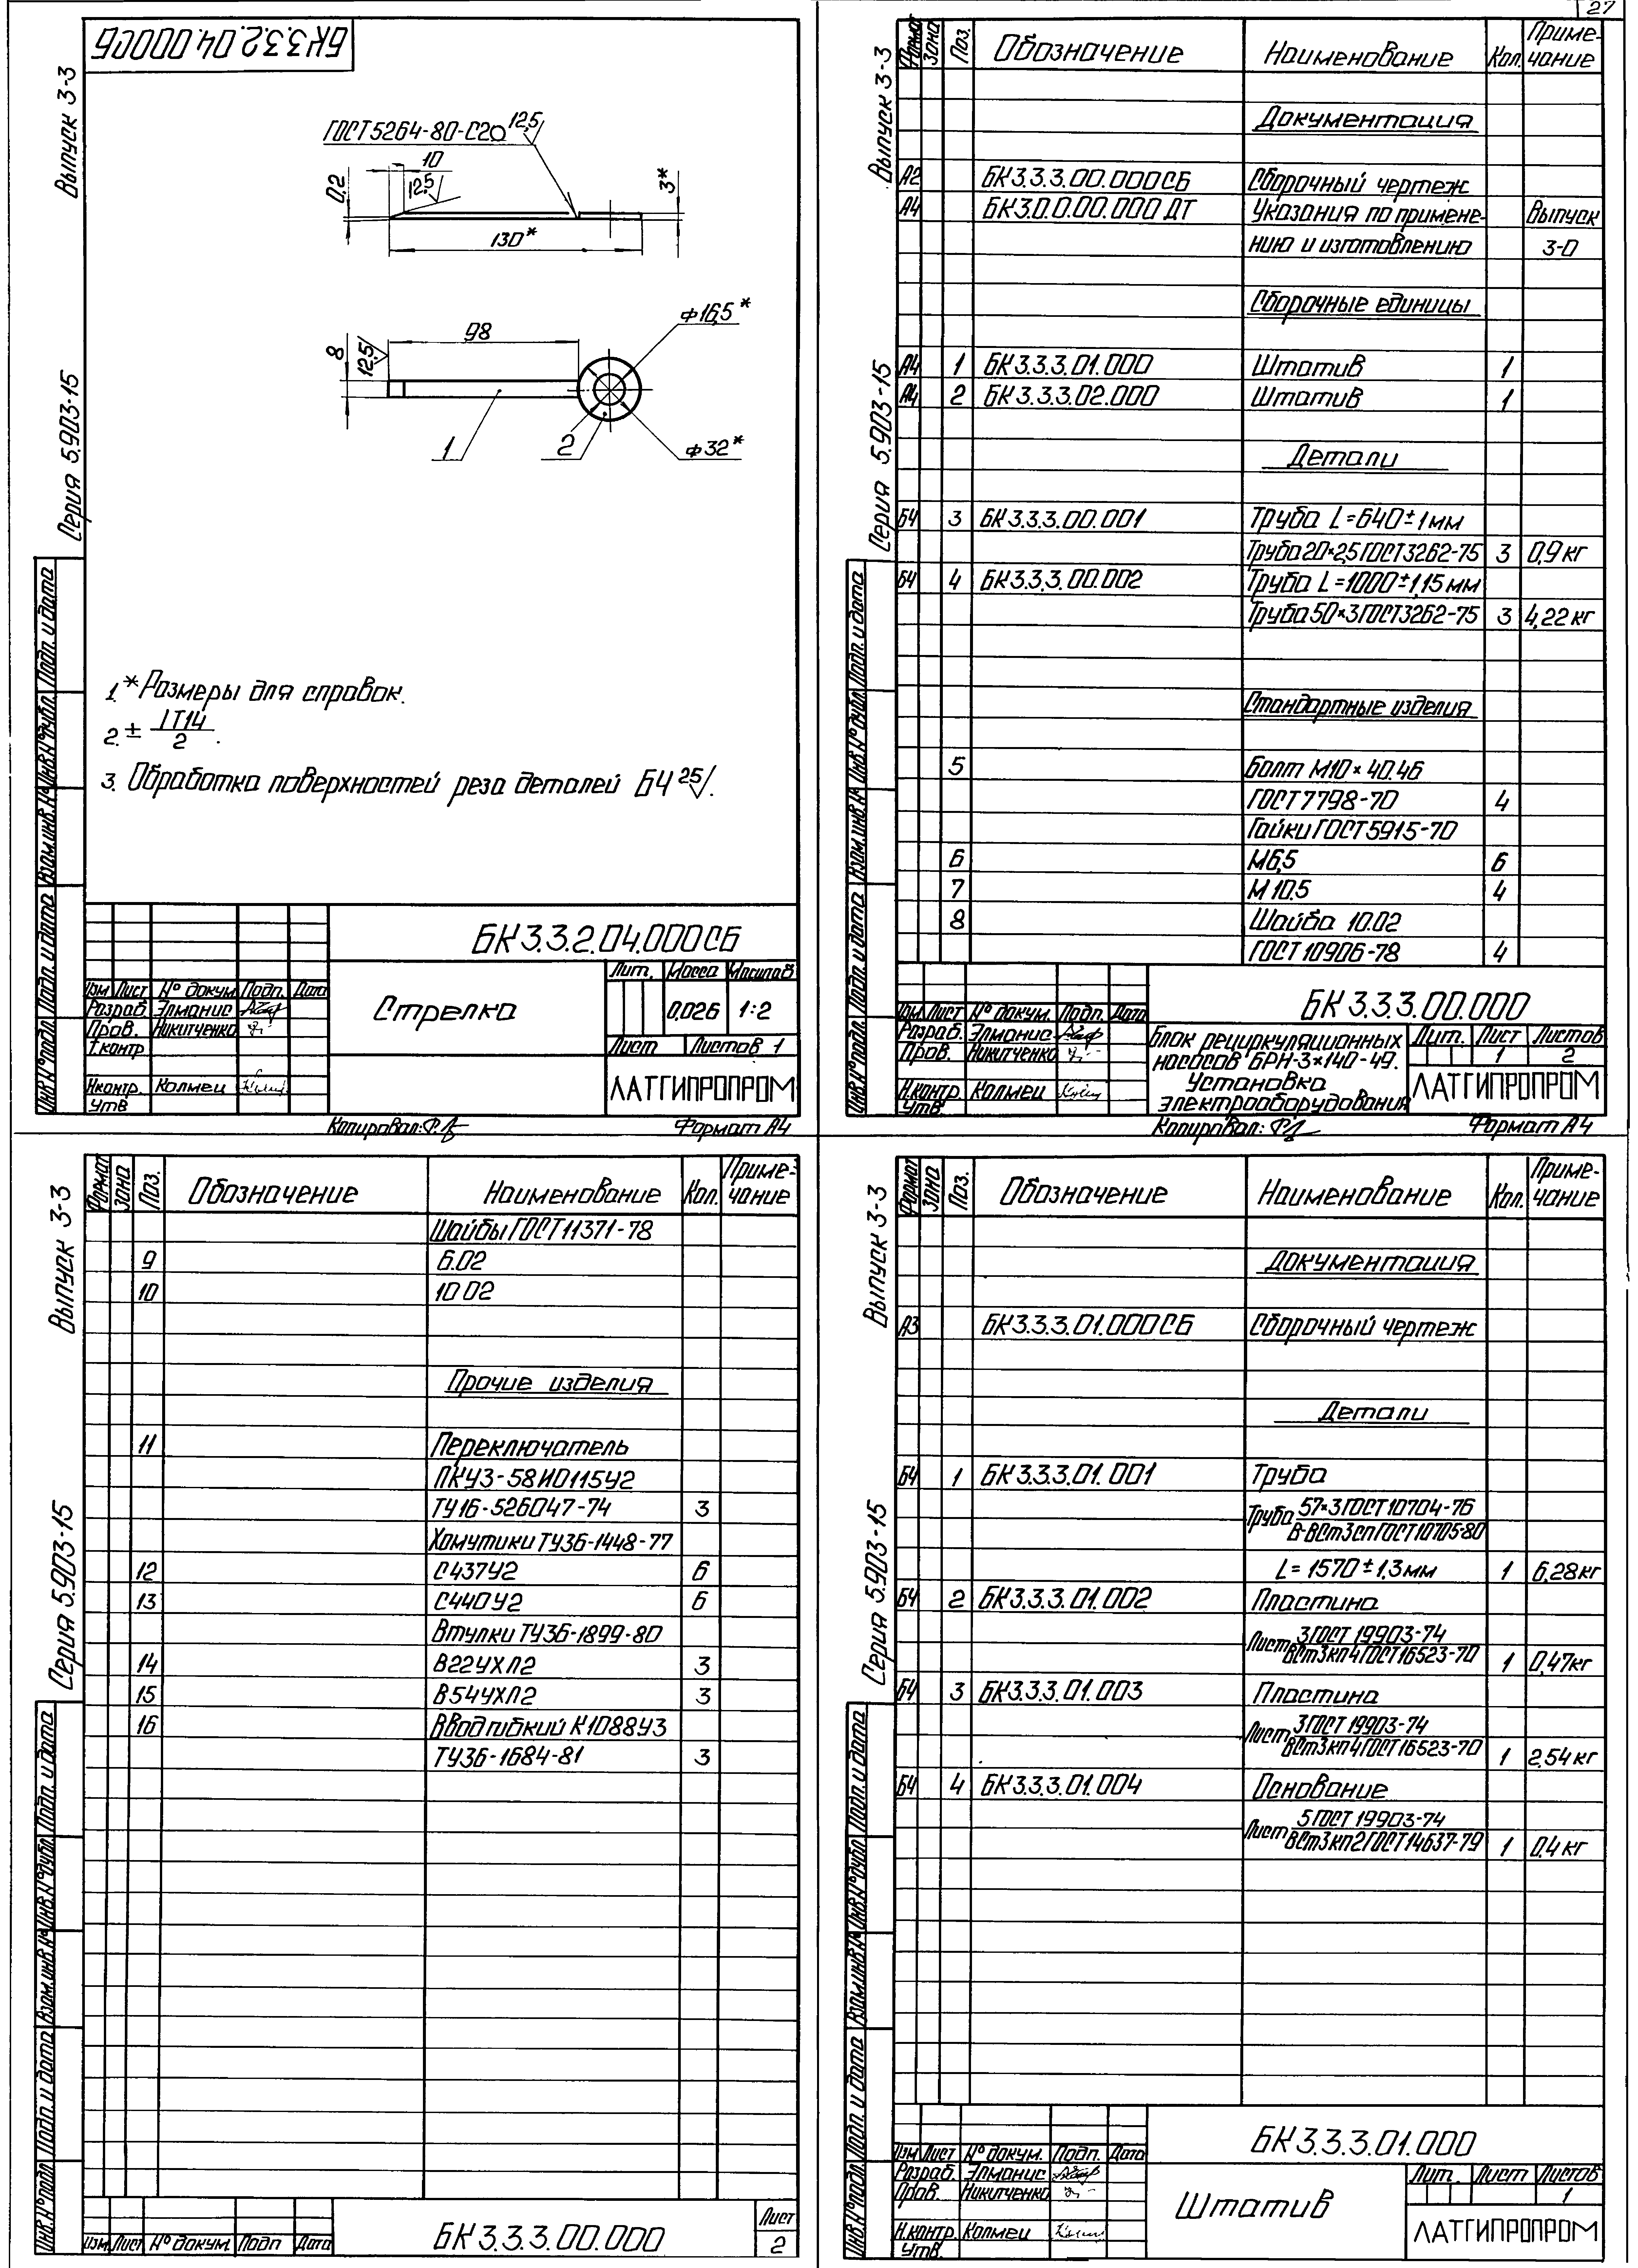 27
БК3.3.2.04.000СБ
Выпуск 3-3
Серия 5.903-15
ГОСТ5264-80-С2 12,5
10
0.2
12.5
3*
130*
98
8
12.5
ф16,5*
1
2
ф32*
1. *Размеры для справок.
2. ± IT14/2.
3. Обработка поверхностей реза деталей БЧ 25.
Инв.№подл. Подп. и дата Взам.инв.№ Инв.№дубл. Подп. и дата
БК3.3.2.04.000СБ
Изм Лист № докум. Подп. Дата
Разраб. Элманис
Пров. Никитченко
Т.контр
Н.контр. Колмец
Утв
Стрелка
Лит. Масса Масштаб
0,026 1:2
Лист Листов 1
ЛАТГИПРОПРОМ
Копировал:
Формат А4
Выпуск 3-3
Серия 5.903-15
Формат Зона Поз. Обозначение Наименование Кол. Примечание
Документация
А2 БК3.3.3.00.000СБ Сборочный чертеж
А4 БК3.0.0.00.000 ДТ Указания по примене- Выпуск
нию и изготовлению 3-0
Сборочные единицы
А4 1 БК3.3.3.01.000 Штатив 1
А4 2 БК3.3.3.02.000 Штатив 1
Детали
БЧ 3 БК3.3.3.00.001 Труба L=640±1мм
Труба 20×2,5 ГОСТ3262-75 3 0,9 кг
БЧ 4 БК3.3.3.00.002 Труба L=1000±1,15 мм
Труба 50×3 ГОСТ3262-75 3 4,22 кг
Стандартные изделия
5 Болт М10×40.46
ГОСТ 7798-70 4
Гайки ГОСТ5915-70
6 М6,5 6
7 М10.5 4
8 Шайба 10.02
ГОСТ 10906-78 4
Инв.№подл. Подп. и дата Взам.инв.№ Инв.№дубл. Подп. и дата
БК3.3.3.00.000
Изм Лист № докум. Подп. Дата
Разраб. Элманис
Пров. Никитченко
Н.контр. Колмец
Утв.
Блок рециркуляционных
насосов БРН-3×140-49.
Установка
электрооборудования
Лит. Лист Листов
1 2
ЛАТГИПРОПРОМ
Копировал:
Формат А4
Выпуск 3-3
Серия 5.903-15
Формат Зона Поз. Обозначение Наименование Кол. Приме-чание
Шайбы ГОСТ11371-78
9 6.02
10 10 02
Прочие изделия
11 Переключатель
ПКУ3-58И0115У2
ТУ16-526047-74 3
Хомутики ТУ36-1448-77
12 С437У2 6
13 С440У2 6
Втулки ТУ36-1899-80
14 В22УХЛ2 3
15 В54УХЛ2 3
16 Ввод гибкий К1088У3
ТУ36-1684-81 3
Инв.№подл. Подп. и дата Взам.инв.№ Инв.№дубл. Подп. и дата
Изм Лист № докум. Подп Дата
БК3.3.3.00.000
Лист
2
Выпуск 3-3
Серия 5.903-15
Формат Зона Поз. Обозначение Наименование Кол. Приме-чание
Документация
А3 БК3.3.3.01.000СБ Сборочный чертеж
Детали
БЧ 1 БК3.3.3.01.001 Труба
Труба 57×3 ГОСТ10704-76
В-ВСт3сп ГОСТ10705-80
L=1570±1,3мм 1 6,28кг
БЧ 2 БК3.3.3.01.002 Пластина
Лист 3 ГОСТ 19903-74
ВСт3кп4 ГОСТ16523-70 1 0,47кг
БЧ 3 БК3.3.3.01.003 Пластина
Лист 3 ГОСТ 19903-74
ВСт3кп4 ГОСТ16523-70 1 2,54 кг
БЧ 4 БК3.3.3.01.004 Основание
Лист 5 ГОСТ 19903-74
ВСт3кп2 ГОСТ14637-79 1 0,4 кг
Инв.№подл. Подп. и дата Взам.инв.№ Инв.№дубл. Подп. и дата
БК3.3.3.01.000
Изм Лист № докум. Подп. Дата
Разраб. Элманис
Пров. Никитченко
Н.контр. Колмец
Утв.
Штатив
Лит. Лист Листов
1
ЛАТГИПРОПРОМ